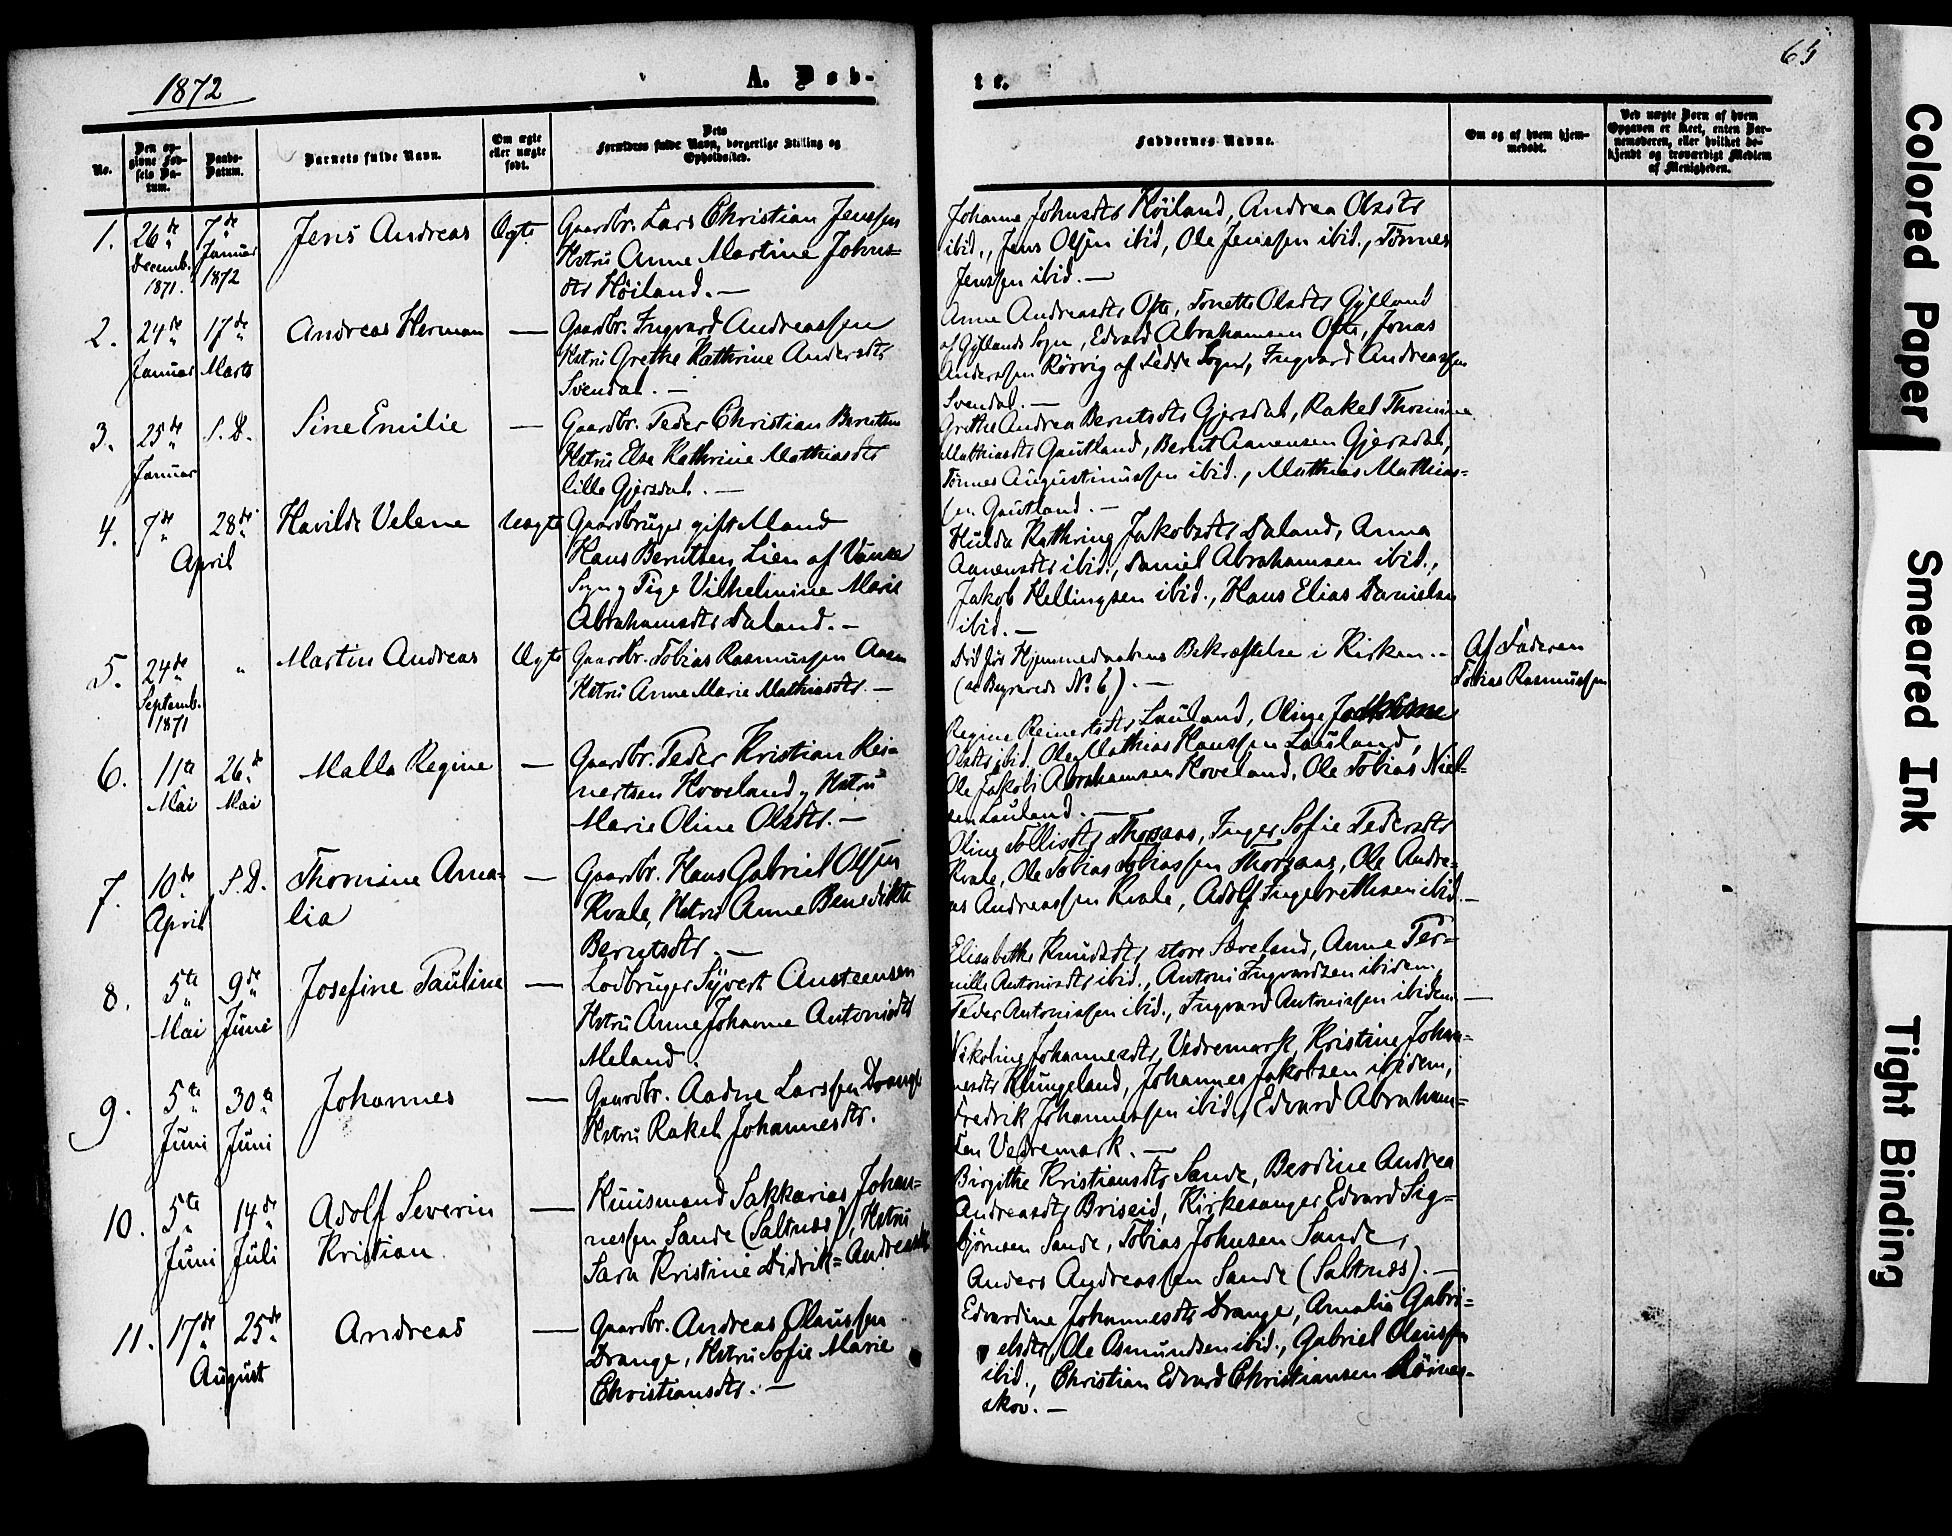 1872
A. Døb-
te.
65
No.
Den op-
givne Fød-
sels Da-
tum.
Daabs-
Datum.
Barnets fulde Navn.
Om ægte
eller uægte
født.
Dets
Forældres fulde Navn, borgerlige Stilling og
Opholdssted.
Faddernes Navne.
Om og af hvem hjem-
medøbt.
Ved uægte Børn af hvem
Opgaven er skeet, enten Bar-
nemoderen, eller hvilket be-
kjendt og troværdigt Medlem
af Menigheden.
1.
26de
Decemb.
1871.
7de
Januar
1872
Jens Andreas
Ægte
Gaardbr. Lars Christian Jenssen
Hstru Anne Martine Johns-
dtr Høiland. —
Johanne Johnsdtr Høiland, Andrea Olsdtr
ibid., Jens Olsen ibid, Ole Jenssen ibid., Tønnes
Jenssen ibid. —
2.
24de
Januar
17de
Marts
Andreas Herman
—
Gaardbr. Ingvard Andreassen
Hstru Grethe Kathrine Andersdtr
Svendal. —
Anne Andreasdtr Ofte, Tonette Olsdtr Gyland
af Gyllands Sogn, Edvard Abrahamsen Ofte, Jonas
Anderssen Rørvig af Fedde Sogn, Ingvard Andreassen
Svendal. —
3.
25de
Januar
S. D.
Sine Emilie
—
Gaardbr. Peder Christian Berntsen
Hstru Else Kathrine Mathiasdtr
lille Gjersdal. —
Grethe Andrea Berntsdtr Gjersdal, Rakel Thomine
Mathiasdtr Gautland, Bernt Aanensen Gjersdal,
Tønnes Augustinussen ibid., Mathias Mathias-
sen Gautland. —
4.
7de
28de
April
Havilde Velene
Uægte
Gaardbruger gift Mand
Hans Berntsen Lien af Vanse
Sogn og Pige Vilhelmine Marie
Abrahamsdtr Daland. —
Hulda Kathrine Jakobsdtr Daland, Anna
Aanensdtr ibid., Daniel Abrahamsen ibid.,
Jakob Hellingsen ibid., Hans Elias Danielsen
ibid. —
5.
24de
Septemb.
1871
"
Martin Andreas
Ægte
Gaardbr. Tobias Rasmussen Aasen
Hstru Anne Marie Mathiasdtr. —
Død før Hjemmedaabens Bekræftelse i Kirken. —
(se Begravede No 6). —
Af Faderen
Tobias Rasmussen
6.
11te
Mai
26de
Mai
Malla Regine
—
Gaardbr. Peder Kristian Rei-
nertsen Hoveland og Hstru
Marie Oline Olsdtr. —
Regine Reinertsdtr Lauland, Oline
Olsdtr ibid. Ole Mathias Hanssen Lauland,
Ole Jakob Abrahamsen Hoveland, Ole Tobias Niel-
sen Lauland. —
7.
10de
April
S. D.
Thomine Ama-
lia
—
Gaardbr. Hans Gabriel Olsen
Kvale, Hstru Anne Benedikte
Berntsdtr. —
Oline Tollisdtr Thorsaas, Inger Sofie Pedersdtr
Kvale, Ole Tobias Tobiassen Thorsaas, Ole Andre-
as Andreassen Kvale, Adolf Ingebrethsen ibid. —
8.
5te
Mai
9de
Juni
Josefine Pauline
—
Lodbruger Syvert Austeensen
Hstru Anne Johanne Antonisdtr
Meland.
Elisabeth Knudsdtr store Sæveland, Anne Per-
nille Antonisdtr ibid., Antoni Ingvardsen ibidem,
Peder Antonissen ibid., Ingvard Antonissen ibidem —
9.
5te
Juni
30te
Juni
Johannes
—
Gaardbr. Aadne Larssen Drange
Hstru Rakel Johannesdtr.
Johannesdtr Vedremark, Kristine Johan-
nesdtr Klungeland, Johannes Jakobsen ibidem,
Fredrik Johannessen ibid, Edvard Abraham-
sen Vedremark. —
10.
5te
Juni
14de
Juli
Adolf Severin
Kristian
—
Huusmand Sakkarias Johan-
nessen Sande (Saltnæs), Hstru
Sara Kristine Didrik= Andreasdtr
Birgithe Kristiansdtr Sande, Berdine Andrea
Andreasdtr Briseid, Kirkesanger Edvard Sig-
bjørnsen Sande, Tobias Johnsen Sande,
Anders Andreassen Sande (Saltnæs). —
11.
17de
25de
August
Andreas
—
Gaardbr. Andreas Olaussen
Drange, Hstru Sofie Marie
Christiansdtr. —
Edvardine Johannesdtr Drange, Amalia Gabri-
elsdtr, Ole Osmundsen ibid., Gabriel Olaussen
ibid., Christian Edvard Christiansen Røines-
skov. —
Colored Paper
Smeared Ink
Tight Binding